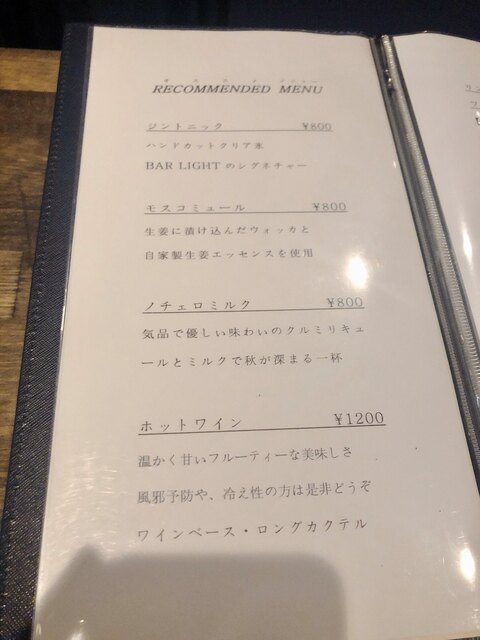 RECOMMENDED MENU
ジントニック ¥800
ハンドカットクリア氷
BAR LIGHT のシグネチャー
モスコミュール ¥800
生姜に漬け込んだウォッカと
自家製生姜エッセンスを使用
ノチェロミルク ¥800
気品で優しい味わいのクルミリキュ
ールとミルクで秋が深まる一杯
ホットワイン ¥1200
温かく甘いフルーティーな美味しさ
風邪予防や、冷え性の方は是非どうぞ
ワインベース・ロングカクテル